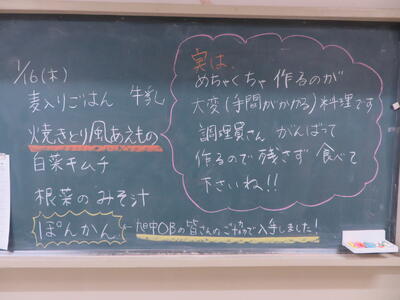 1/16(木)
麦入りごはん 牛乳
焼きとり風あえもの
白菜キムチ
根菜のみそ汁
ぽんかん
実は、
めちゃくちゃ作るのが
大変(手間がかかる)料理です
調理員さん がんばって
作るので残さず食べて
下さいね!!
OBの皆さんのご協力で入手しました!